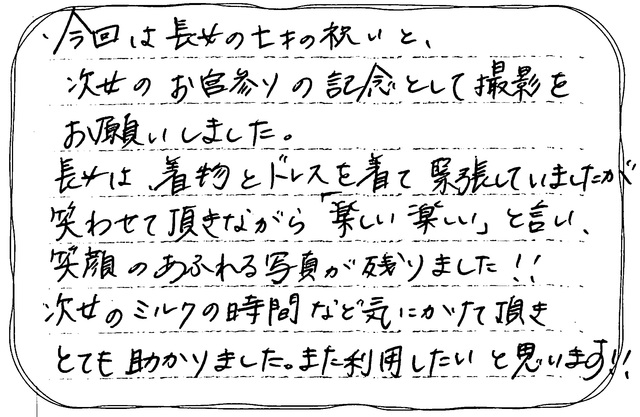 今回は長女の七才の祝いと、
次女のお宮参りの記念として撮影を
お願いしました。
長女は、着物とドレスを着て緊張していましたが
笑わせて頂きながら「楽しい楽しい」と言い、
笑顔のあふれる写真が残りました!!
次女のミルクの時間など気にかけて頂き
とても助かりました。また利用したいと思います!!